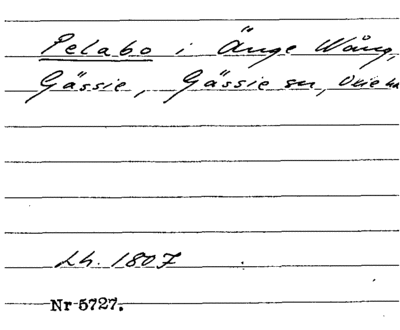 Pelabo i Änge Wång,
Gässie, Gässie sn, Oxie hd
Lh. 1807
Nr 5727.